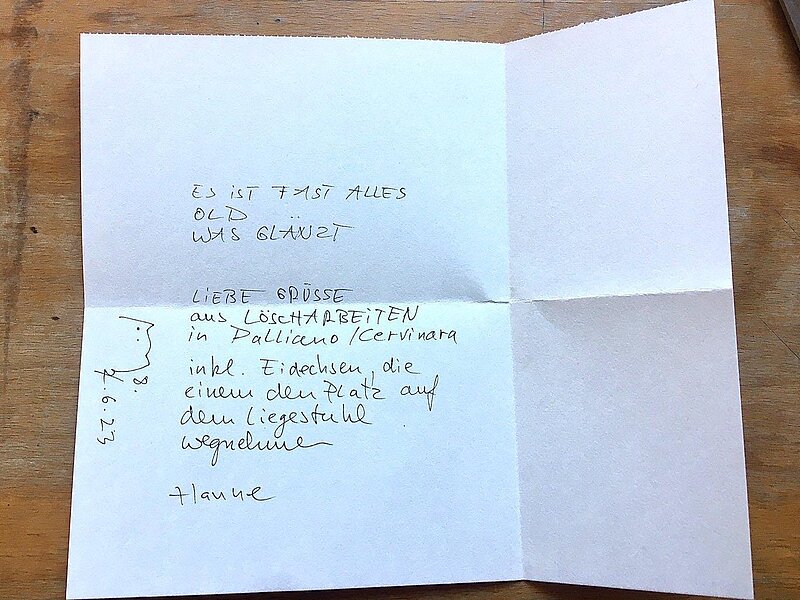 ES IST FAST ALLES
OLD
WAS GLÄNZT
LIEBE GRÜSSE
aus LÖSCHARBEITEN
in Palliano/Cervinara
inkl. Eidechsen, die
einem den Platz auf
dem Liegestuhl
wegnehmen
Hanne
7.6.23